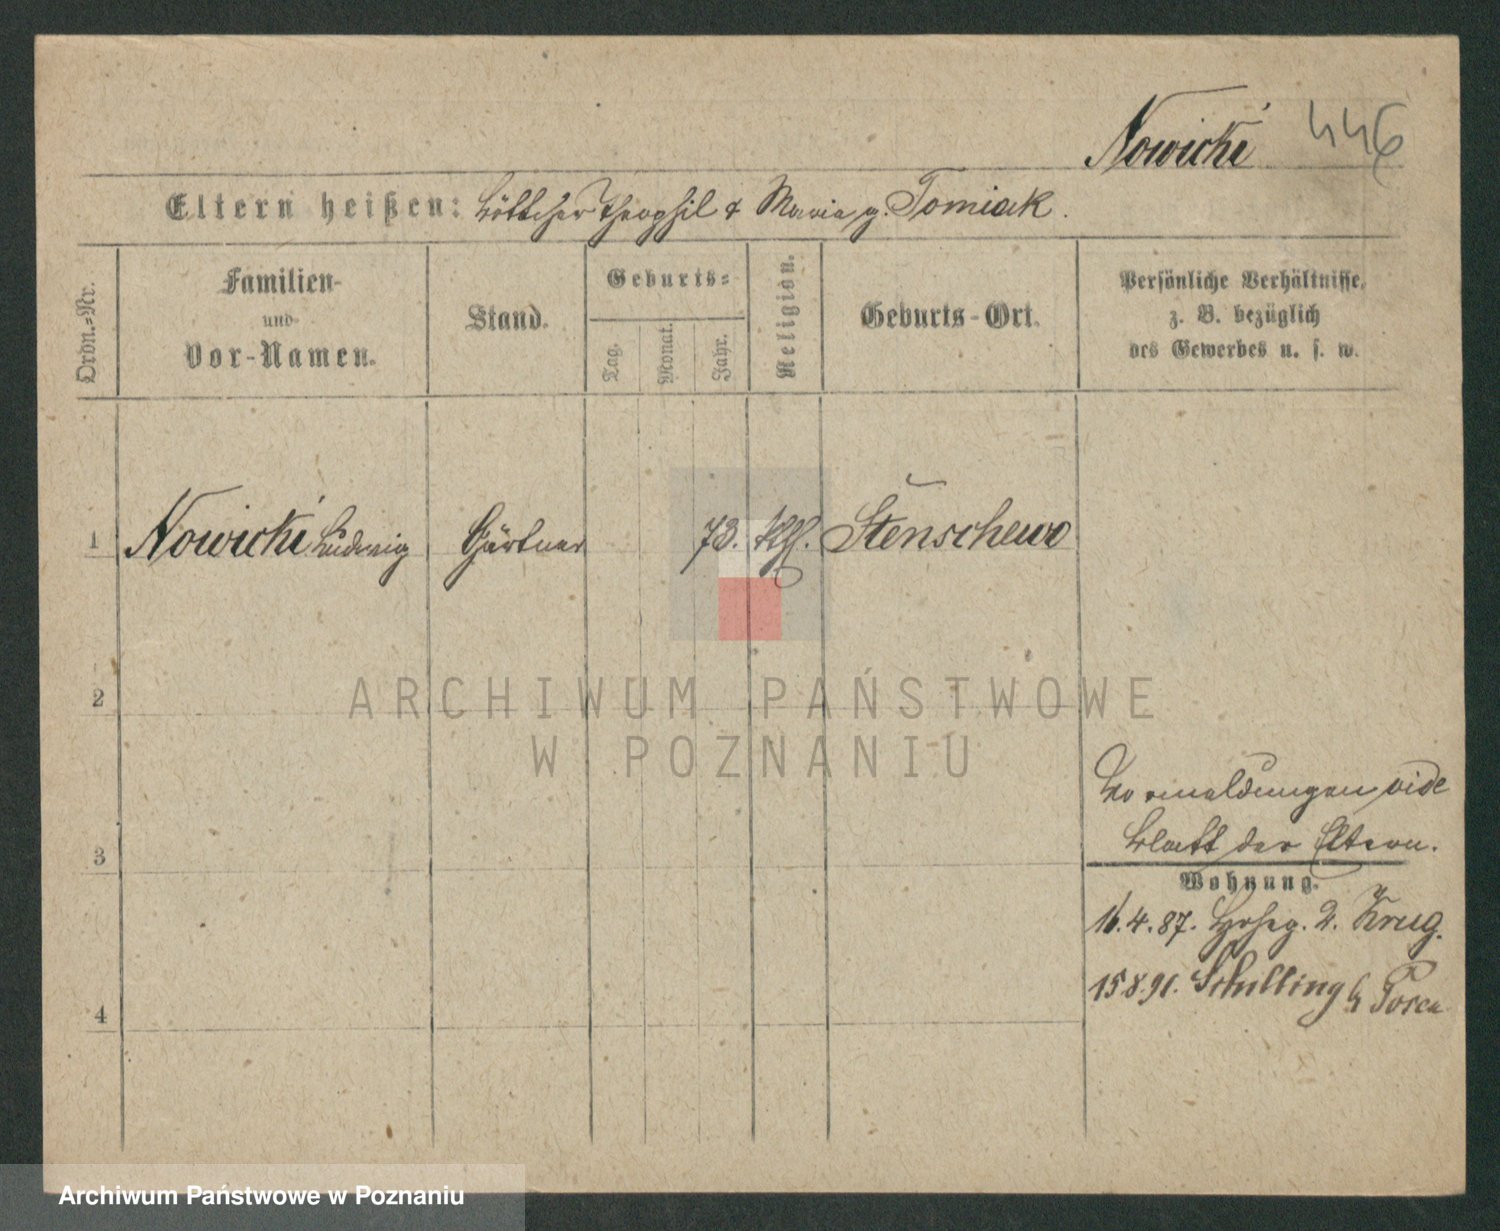 Nowicki 446
Eltern heißen: Böttcher Theophil & Maria g. Tomiak.
Ordn.-Nr.
Familien-
und
Vor-Namen.
Stand.
Geburts-
Tag.
Monat.
Jahr.
Religion.
Geburts-Ort.
Persönliche Verhältnisse,
z. B. bezüglich
des Gewerbes u. s. w.
1 Nowicki Ludwig Gärtner 73. kth. Stenschewo
2
ARCHIWUM PAŃSTWOWE
W POZNANIU
Vormeldungen vide
Blatt der Eltern.
3
Wohnung.
16.4.87. 2. Krug.
15.8.91. Schilling b Posen
4
Archiwum Państwowe w Poznaniu